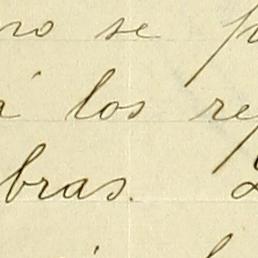 no se p
á los rep
bras.